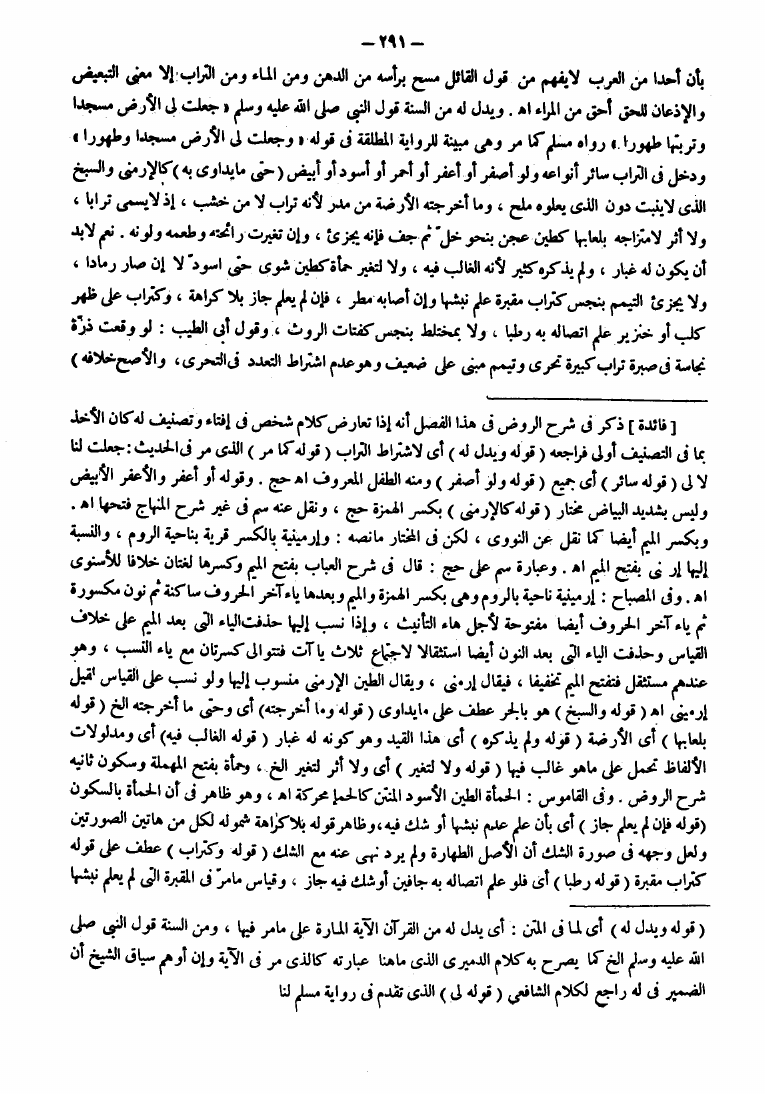 — ٢٩١ —
بأن أحدا من العرب لايفهم من قول القائل مسح برأسه من الدهن ومن الماء ومن التراب إلا معنى التبعيض
والإذعان للحق أحق من المراء اه . ويدل له من السنة قول النبي صلى الله عليه وسلم « جعلت لى الأرض مسجدا
وتربتها طهورا » رواه مسلم كما مر وهى مبينة للرواية المطلقة فى قوله « وجعلت لى الأرض مسجدا وطهورا »
ودخل فى التراب سائر أنواعه ولو أصفر أو أعفر أو أحمر أو أسود أو أبيض ( حتى مايداوى به ) كالإرمنى والسبخ
الذى لاينبت دون الذى يعلوه ملح ، وما أخرجته الأرضة من مدر لأنه تراب لا من خشب ، إذ لايسمى ترابا ،
ولا أثر لامتزاجه بلعابها كطين عجن بنحو خل ثم جف فإنه يجزئ ، وإن تغيرت رائحته وطعمه ولونه . نعم لابد
أن يكون له غبار ، ولم يذكره كثير لأنه الغالب فيه ، ولا لتغير حمأة كطين شوى حتى اسود لا إن صار رمادا ،
ولا يجزئ التيمم بنجس كتراب مقبرة علم نبشها وإن أصابه مطر ، فإن لم يعلم جاز بلا كراهة ، وكتراب على ظهر
كلب أو خنزير علم اتصاله به رطبا ، ولا بمختلط بنجس كفتات الروث ، وقول أبى الطيب : لو وقعت ذرّة
نجاسة فى صبرة تراب كبيرة تحرى وتيمم مبنى على ضعيف وهو عدم اشتراط التعدد فى التحرى ، والأصح خلافه )
[ فائدة ] ذكر فى شرح الروض فى هذا الفصل أنه إذا تعارض كلام شخص فى إفتاء وتصنيف له كان الأخذ
بما فى التصنيف أولى فراجعه ( قوله ويدل له ) أى لاشتراط التراب ( قوله كما مر ) الذى مر فى الحديث : جعلت لنا
لا لى ( قوله سائر ) أى جميع ( قوله ولو أصفر ) ومنه الطفل المعروف اه حج . وقوله أو أعفر والأعفر الأبيض
وليس بشديد البياض مختار ( قوله كالإرمنى ) بكسر الهمزة حج ، ونقل عنه سم فى غير شرح المنهاج فتحها اه .
وبكسر الميم أيضا كما نقل عن النووى ، لكن فى المختار مانصه : وإرمينية بالكسر قرية بناحية الروم ، والنسبة
إليها إرمنى بفتح الميم اه . وعبارة سم على حج : قال فى شرح العباب بفتح الميم وكسرها لغتان خلافا للأسنوى
اه . وفى المصباح : إرمينية ناحية بالروم وهى بكسر الهمزة والميم وبعدها ياء آخر الحروف ساكنة ثم نون مكسورة
ثم ياء آخر الحروف أيضا مفتوحة لأجل هاء التأنيث ، وإذا نسب إليها حذفت الياء التى بعد الميم على خلاف
القياس وحذفت الياء التى بعد النون أيضا استثقالا لاجتماع ثلاث يا آت فتتوالى كسرتان مع ياء النسب ، وهو
عندهم مستثقل فتفتح الميم تخفيفا ، فيقال إرمنى ، ويقال الطين الإرمنى منسوب إليها ولو نسب على القياس لقيل
إرمينى اه ( قوله والسبخ ) هو بالجر عطف على مايداوى ( قوله وما أخرجته ) أى وحتى ما أخرجته الخ ( قوله
بلعابها ) أى الأرضة ( قوله ولم يذكره ) أى هذا القيد وهو كونه له غبار ( قوله الغالب فيه ) أى ومدلولات
الألفاظ تحمل على ماهو غالب فيها ( قوله ولا لتغير ) أى ولا أثر لتغير الخ ، وحمأة بفتح المهملة وسكون ثانيه
شرح الروض . وفى القاموس : الحمأة الطين الأسود المنتن كالحمإ محركة اه ، وهو ظاهر فى أن الحمأة بالسكون
( قوله فإن لم يعلم جاز ) أى بأن علم عدم نبشها أو شك فيه ، وظاهر قوله بلا كراهة شموله لكل من هاتين الصورتين
ولعل وجهه فى صورة الشك أن الأصل الطهارة ولم يرد نهى عنه مع الشك ( قوله وكتراب ) عطف على قوله
كتراب مقبرة ( قوله رطبا ) أى فلو علم اتصاله به جافين أو شك فيه جاز ، وقياس مامر فى المقبرة التى لم يعلم نبشها
( قوله ويدل له ) أى لما فى المتن : أى يدل له من القرآن الآية المارة على مامر فيها ، ومن السنة قول النبي صلى
الله عليه وسلم الخ كما يصرح به كلام الدميرى الذى ماهنا عبارته كالذى مر فى الآية وإن أوهم سياق الشيخ أن
الضمير فى له راجع لكلام الشافعى ( قوله لى ) الذى تقدم فى رواية مسلم لنا